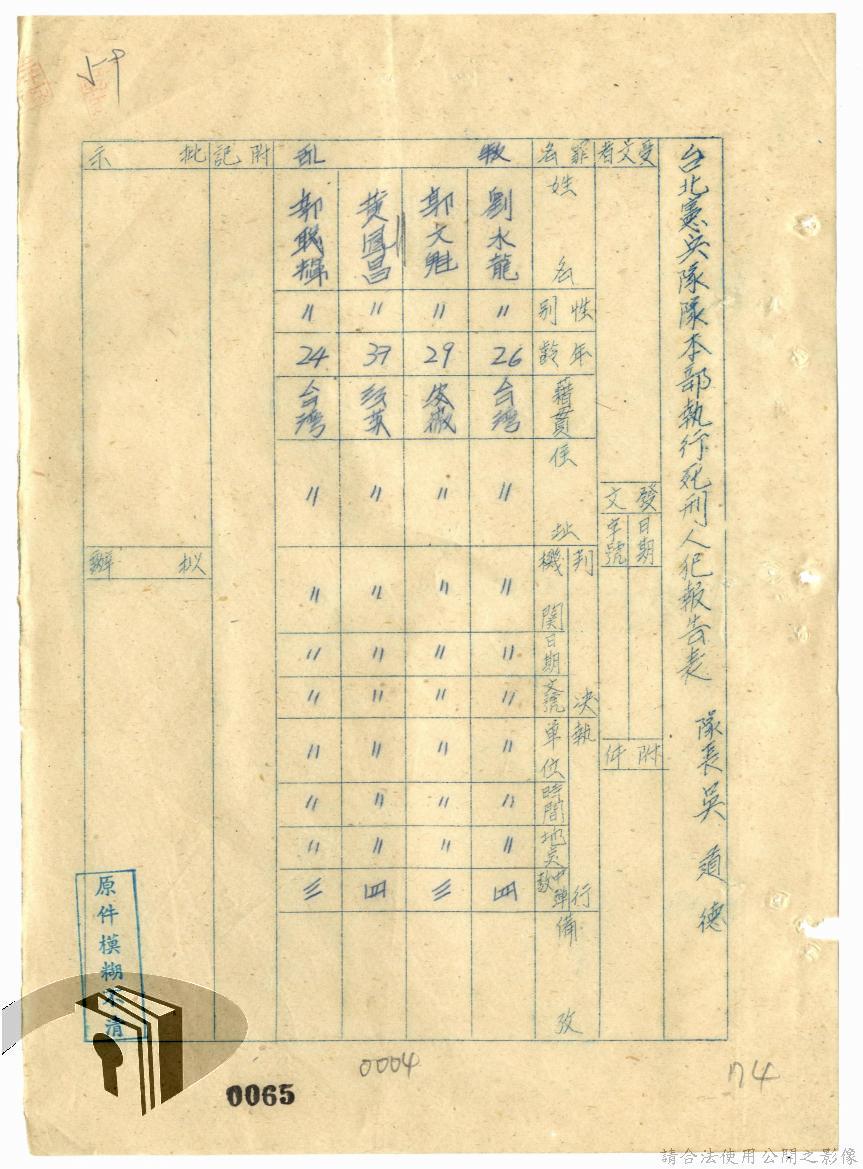 台北憲兵隊隊本部執行死刑人犯報告表 隊長吳道德
受文者
發文
日期
字號
附件
罪名
叛亂
姓名
性別
年齡
藉貫
住址
判決
機關
日期
文號
執行
單位
時間
地點
中彈數
備攷
劉水龍 〃 26 台灣 〃 〃 〃 〃 〃 〃 〃 四
郭文魁 〃 29 安徽 〃 〃 〃 〃 〃 〃 〃 三
黃鳳昌 〃 39 〃 〃 〃 〃 〃 〃 〃 四
郭聰輝 〃 24 台灣 〃 〃 〃 〃 〃 〃 〃 三
附記
批示
拟辦
原件模糊不清
0065
0004
174
請合法使用公開之影像